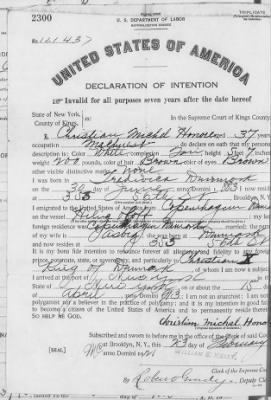 TRIPLICATE
2300
U. S. DEPARTMENT OF LABOR
NATURALIZATION SERVICE
No. 141437
UNITED STATES OF AMERICA
DECLARATION OF INTENTION
Invalid for all purposes seven years after the date hereof
State of New York,
County of Kings,
In the Supreme Court of Kings County.
I, Christian Michel Honore, aged 37 years,
occupation Machinist, do declare on oath that my personal
description is: Color White, complexion, height 5 feet 7 inches,
weight 200 pounds, color of hair Brown, color of eyes Brown
other visible distinctive marks None
I was born in Fredericia Denmark
on the 30 day of June, anno Domini 1883; I now reside
at 353 Brooklyn, N. Y.
I emigrated to the United States of America from Copenhagen Denmark
on the vessel; my last
foreign residence was Copenhagen Denmark; I am married; the name
of my wife is; she was born at Denmark
and now resides at 353 56th St
It is my bona fide intention to renounce forever all allegiance and fidelity to any foreign
prince, potentate, state, or sovereignty, and particularly to Christian X
King of Denmark
I arrived at the port of
State of on or about the 15 day
of April, anno Domini 1913; I am not an anarchist; I am not a
polygamist nor a believer in the practice of polygamy; and it is my intention in good faith
to become a citizen of the United States of America and to permanently reside therein:
SO HELP ME GOD.
Christian Michel Honore
Subscribed and sworn to before me in the office of the Clerk of said Court
[SEAL] at Brooklyn, N. Y., this day of February
anno Domini 1921
WILLIAM E. KELLY
Clerk of the Supreme Court
By, Deputy Clerk